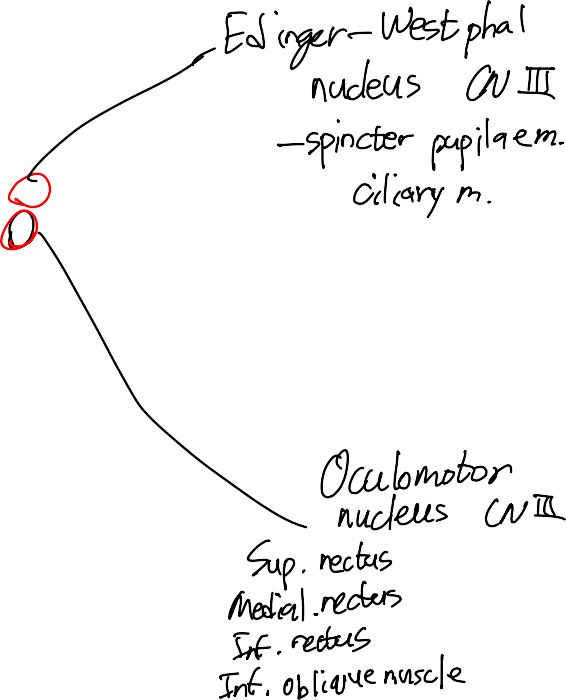 Edinger-Westphal
nucleus CN III
-spincter pupilae m.
ciliary m.
Oculomotor
nucleus CN III
Sup. rectus
Medial. rectus
Inf. rectus
Inf. oblique muscle